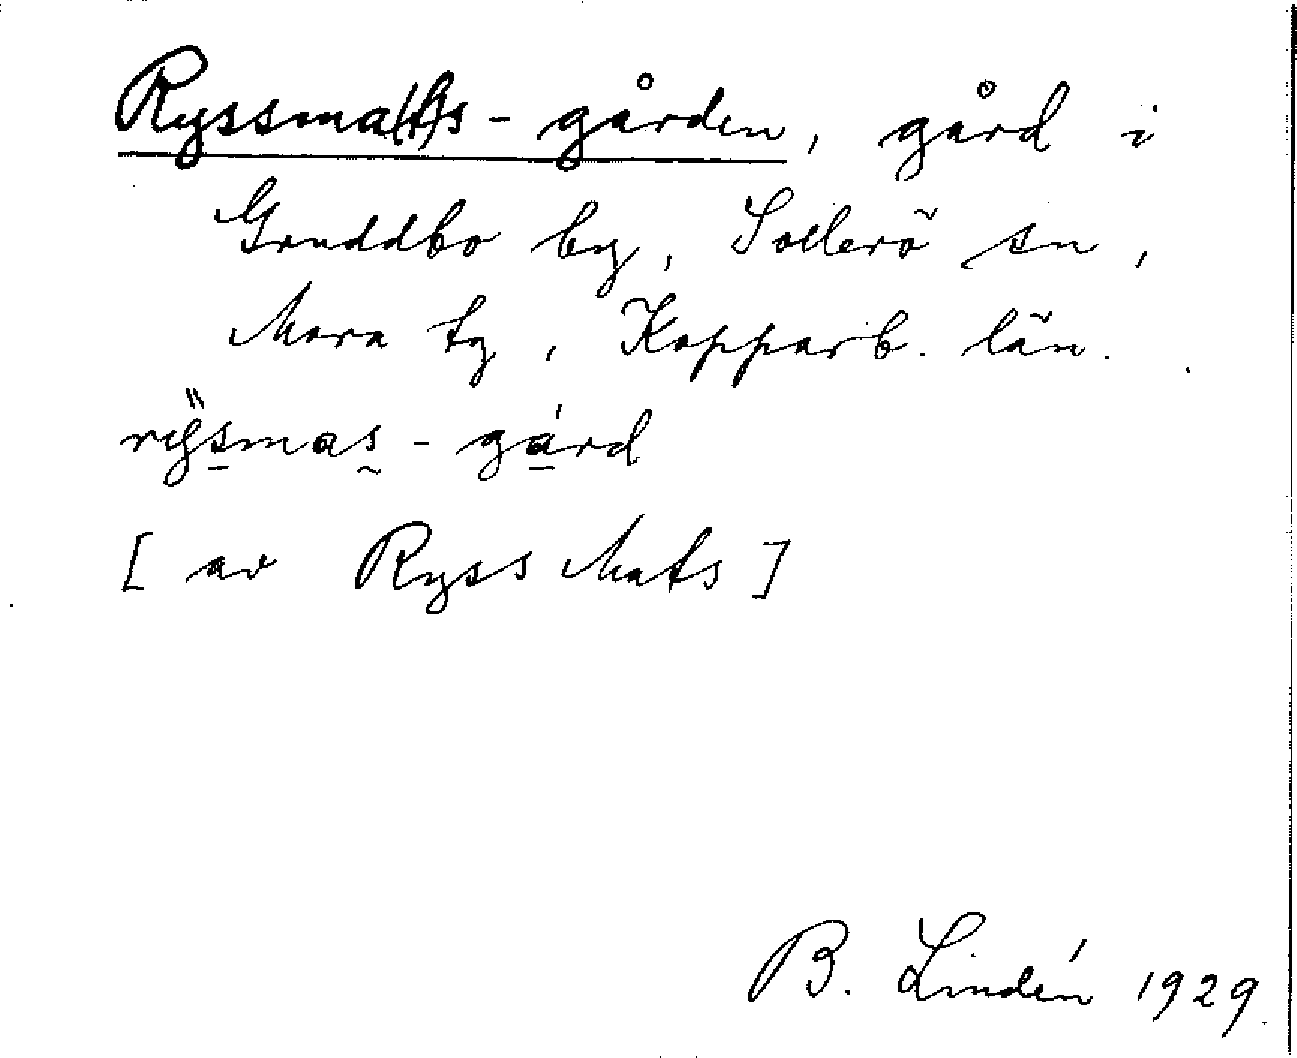 Ryssma(t)s-gården, gård i
Gruddbo by, Sollerö sn,
Mora tg, Kopparb. län.
rÿsmas-gård
[av Ryss Mats]
B. Lindén 1929